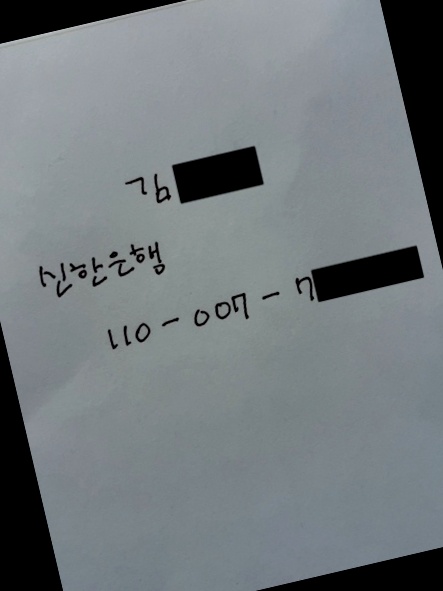 김
신한은행
110-007-7